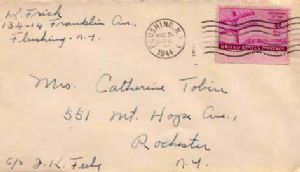 K. Frick
134-14 Franklin Ave.,
Flushing - N.Y.
FLUSHING, N.Y.
1944
UNITED STATES POSTAGE
Mrs. Catherine Tobin
551 Mt. Hope Ave.,
Rochester
N.Y.
c/o J. K.